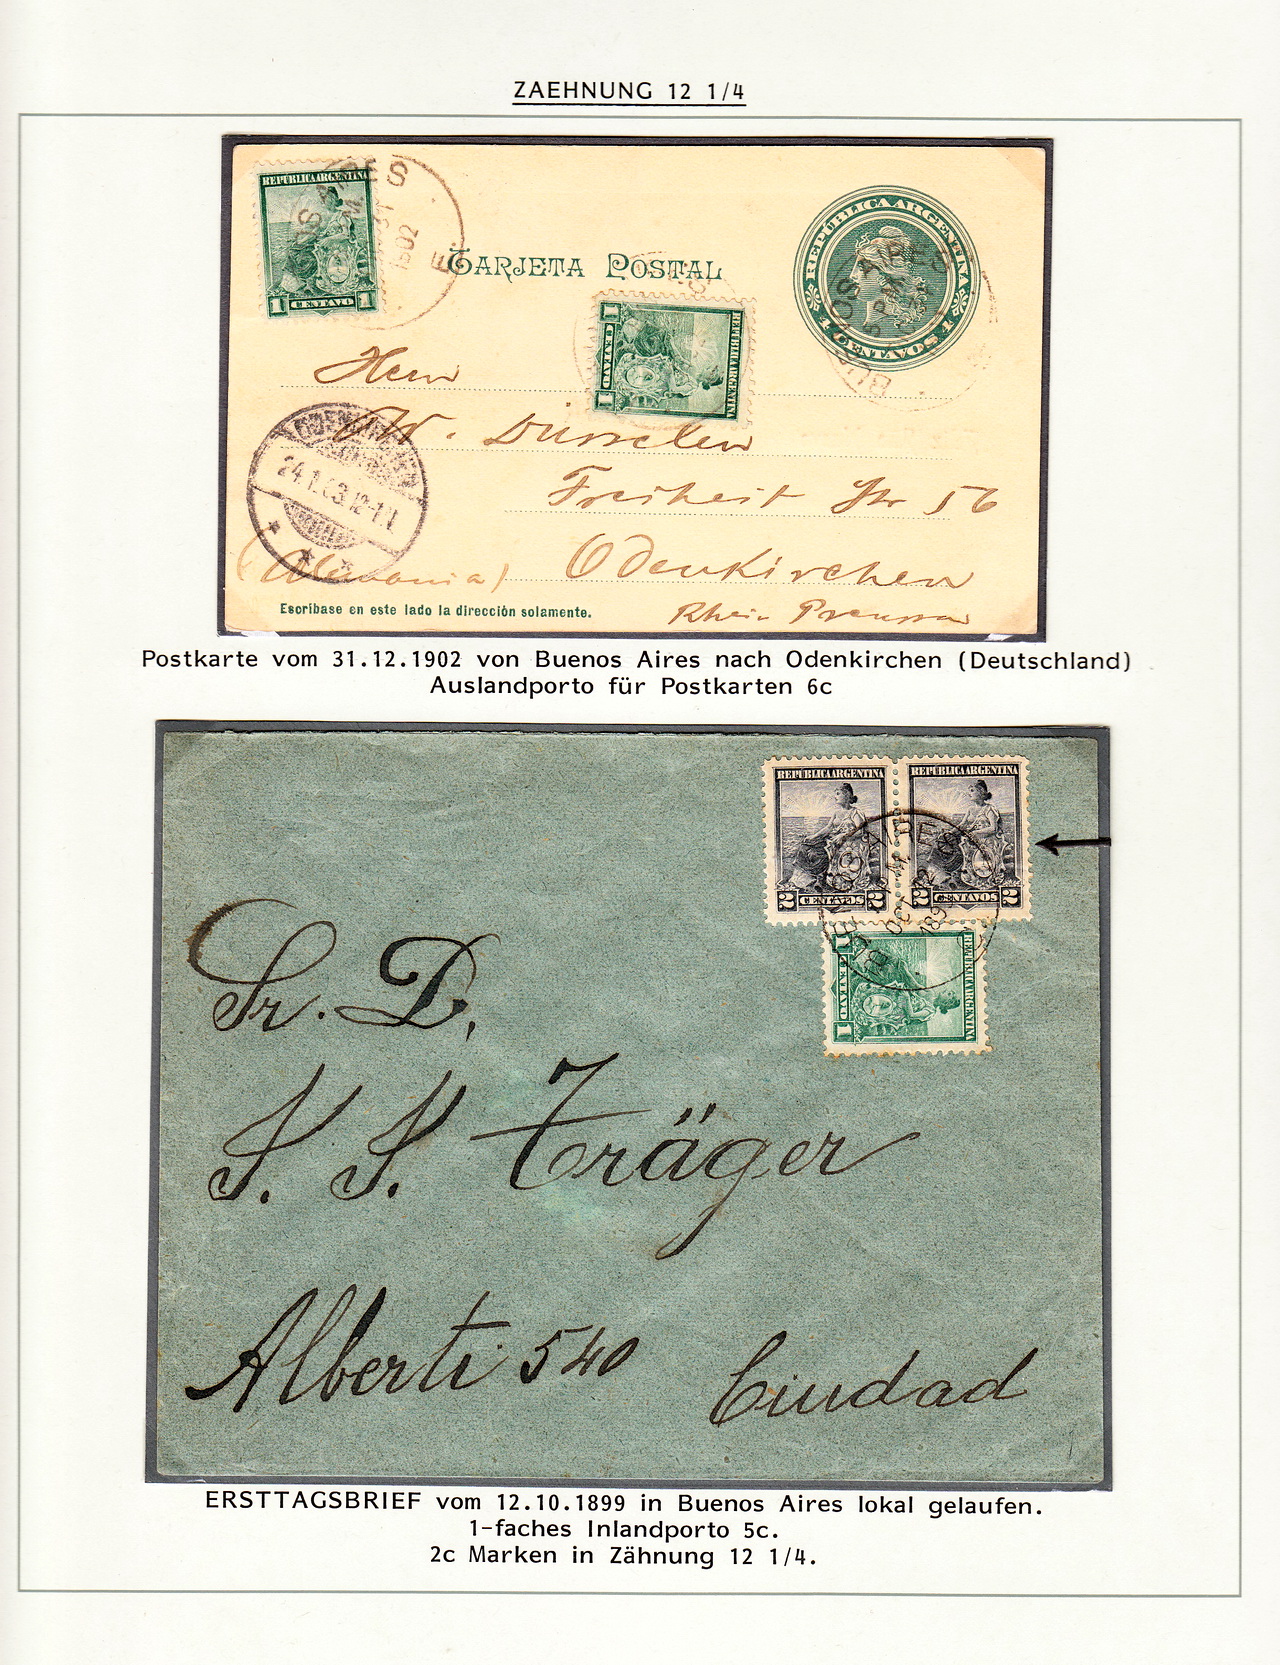 ZAEHNUNG 12 1/4
REPUBLICA ARGENTINA
1 CENTAVO 1
BUENOS AIRES
31
1902
TARJETA POSTAL
REPUBLICA ARGENTINA
1 CENTAVO 1
REPUBLICA ARGENTINA
4 CENTAVOS 4
Herrn
W. Düsselen
Freiheit Str 56
ODENKIRCHEN
24.1.03.12-1
(Alemania) Odenkirchen
Escríbase en este lado la dirección solamente.
Rhein Preussen
Postkarte vom 31.12.1902 von Buenos Aires nach Odenkirchen (Deutschland)
Auslandporto für Postkarten 6c
REPUBLICA ARGENTINA REPUBLICA ARGENTINA
2 CENTAVOS 2 2 CENTAVOS 2
BUENOS AIRES
OCT 12
189
REPUBLICA ARGENTINA
1 CENTAVO 1
Sr. D.
S. S. Träger
Alberti 540 Ciudad
ERSTTAGSBRIEF vom 12.10.1899 in Buenos Aires lokal gelaufen.
1-faches Inlandporto 5c.
2c Marken in Zähnung 12 1/4.